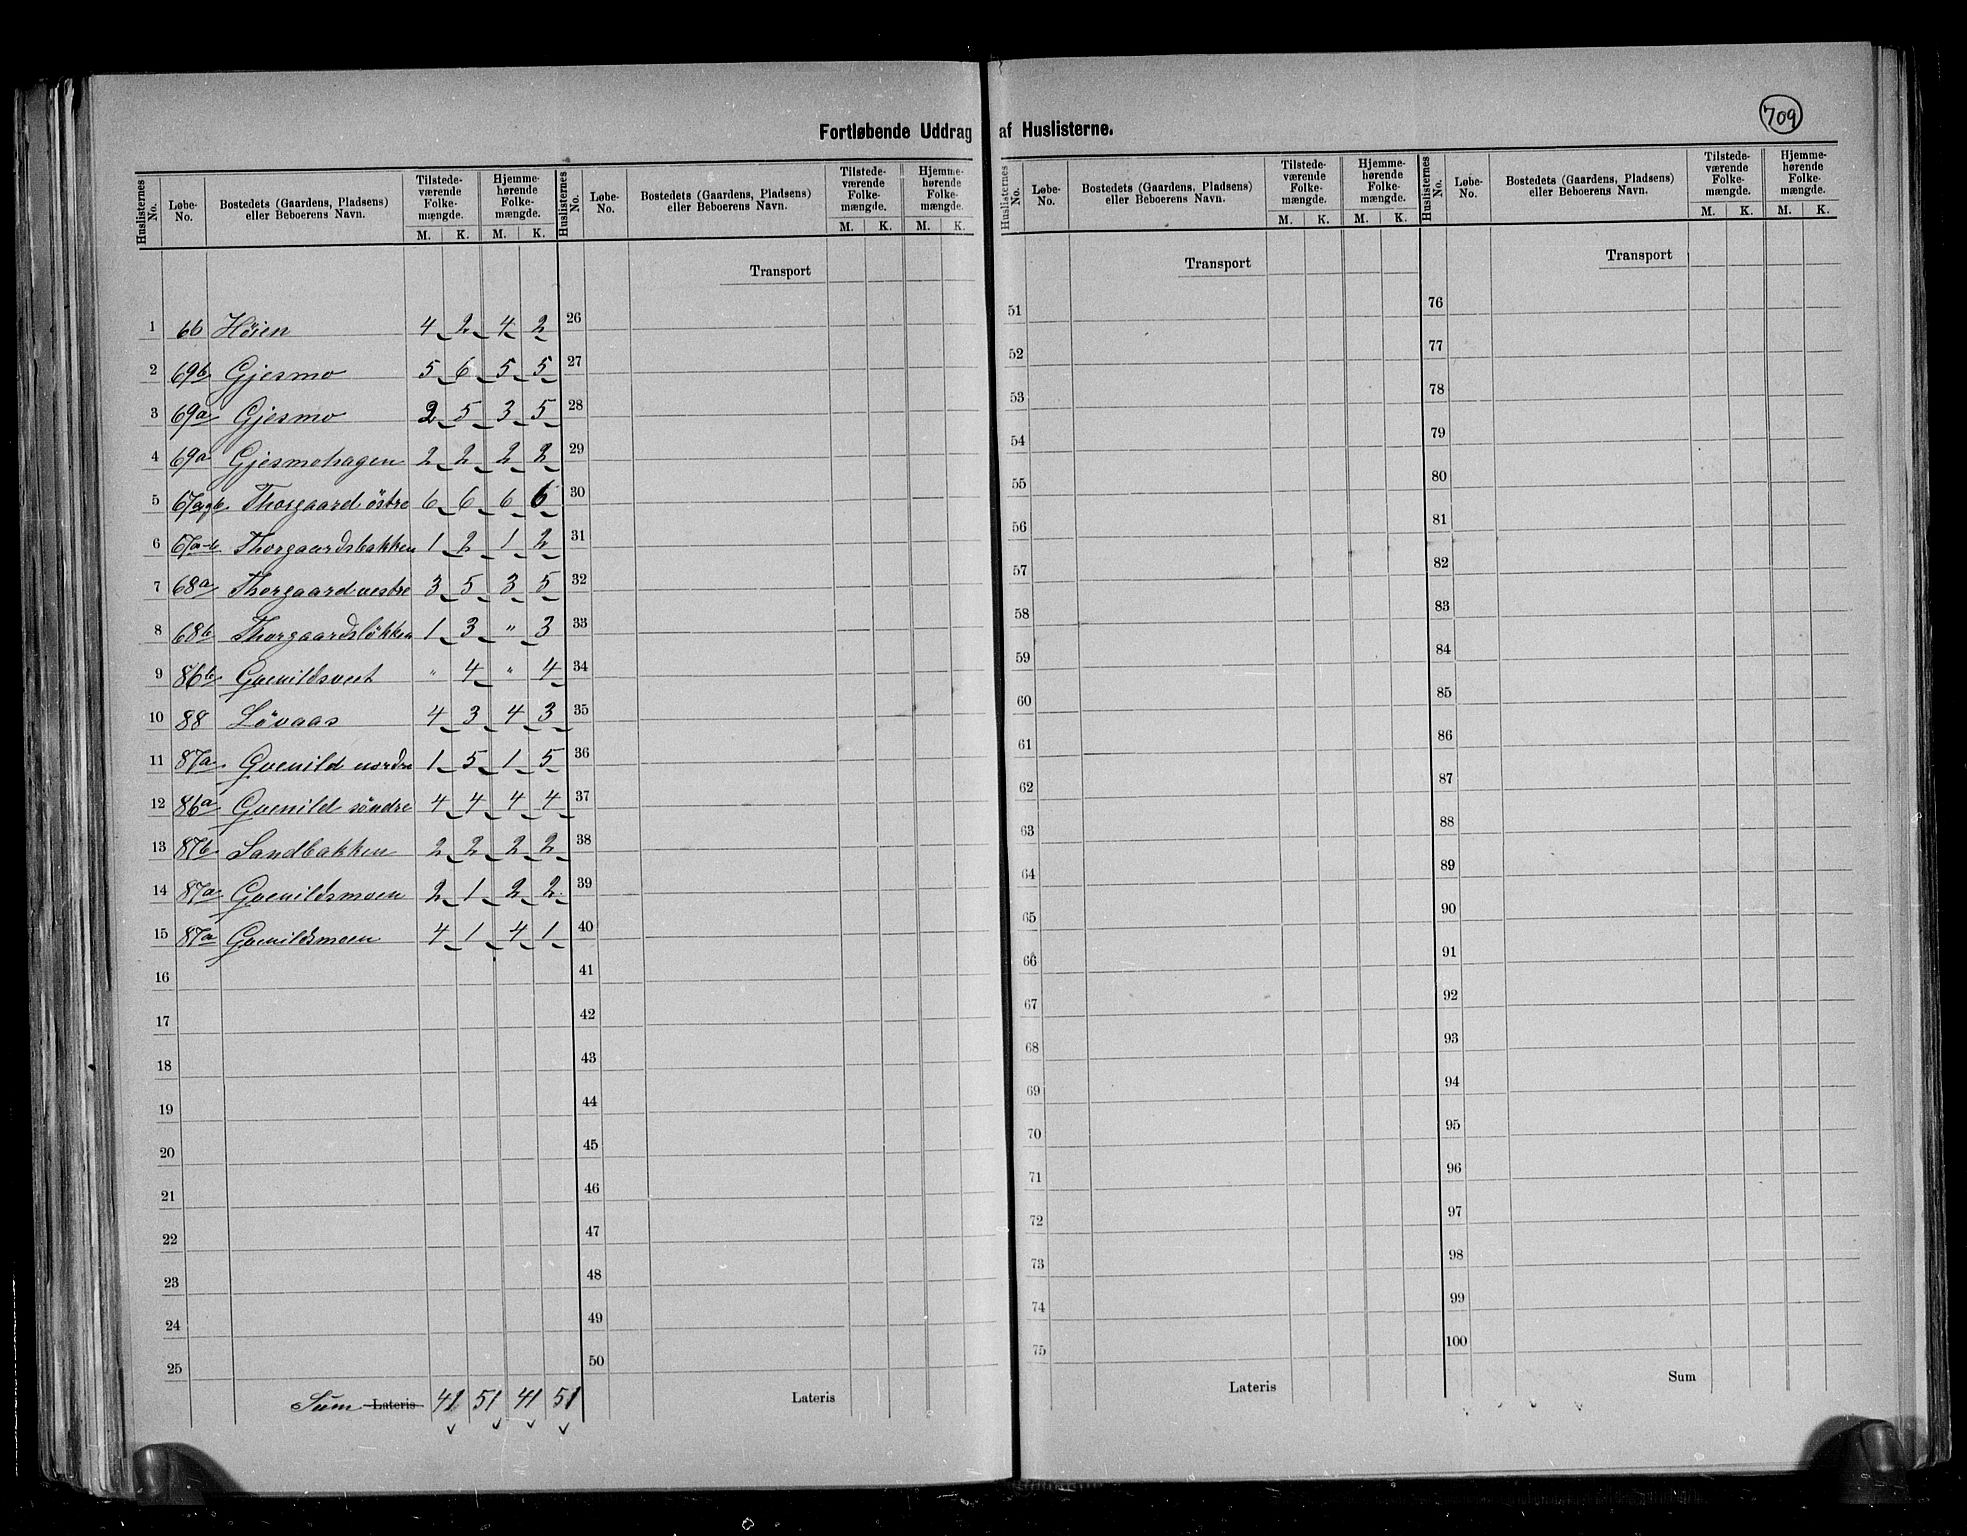 709
Fortløbende Uddrag af Huslisterne.
Huslisternes No. Løbe-No. Bostedets (Gaardens, Pladsens) eller Beboerens Navn. Tilstede-værende Folke-mængde. M. K. Hjemme-hørende Folke-mængde. M. K.
1 66 Höien 4 2 4 2
2 69b Gjesmo 5 6 5 5
3 69a Gjesmo 2 5 3 5
4 69a Gjesmohagen 2 2 2 2
5 67a Thorgaard östre 6 6 6 6
6 67a-b Thorgaardsbakken 1 2 1 2
7 68a Thorgaard vestre 3 5 3 5
8 68b Thorgaardslökken 1 3 " 3
9 86b " 4 " 4
10 88 Lövaas 4 3 4 3
11 87a Gvenild nordre 1 5 1 5
12 86a Gvenild söndre 4 4 4 4
13 87b Sandbakken 2 2 2 2
14 87a Gvenildsmoen 2 1 2 2
15 87a Gvenildsmoen 4 1 4 1
16
17
18
19
20
21
22
23
24
25
Sum Lateris 41 51 41 51
Huslisternes No. Løbe-No. Bostedets (Gaardens, Pladsens) eller Beboerens Navn. Tilstede-værende Folke-mængde. M. K. Hjemme-hørende Folke-mængde. M. K.
Transport
26
27
28
29
30
31
32
33
34
35
36
37
38
39
40
41
42
43
44
45
46
47
48
49
50
Lateris
Huslisternes No. Løbe-No. Bostedets (Gaardens, Pladsens) eller Beboerens Navn. Tilstede-værende Folke-mængde. M. K. Hjemme-hørende Folke-mængde. M. K.
Transport
51
52
53
54
55
56
57
58
59
60
61
62
63
64
65
66
67
68
69
70
71
72
73
74
75
Lateris
Huslisternes No. Løbe-No. Bostedets (Gaardens, Pladsens) eller Beboerens Navn. Tilstede-værende Folke-mængde. M. K. Hjemme-hørende Folke-mængde. M. K.
Transport
76
77
78
79
80
81
82
83
84
85
86
87
88
89
90
91
92
93
94
95
96
97
98
99
100
Sum